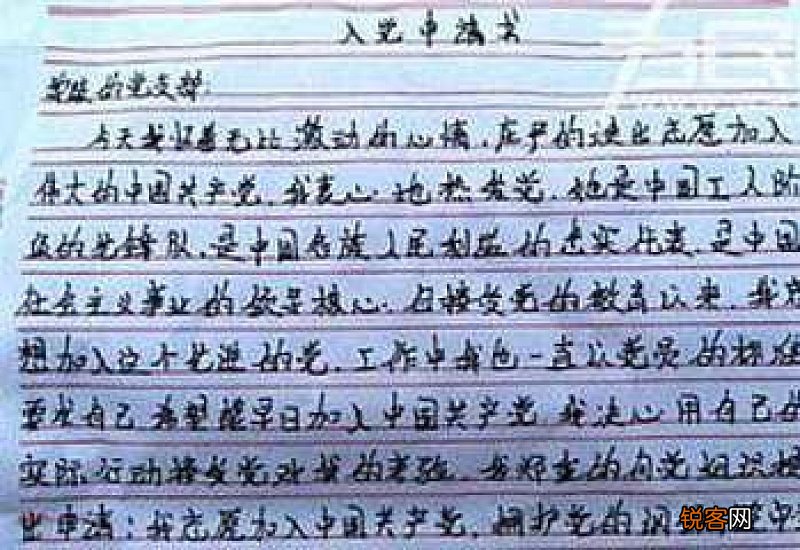 入党申请书
敬爱的党支部:
今天我怀着无比激动的心情,庄严的递出志愿加入
伟大的中国共产党,我衷心地热爱党,她是中国工人阶
级的先锋队,是中国各族人民利益的忠实代表,是中国
社会主义事业的领导核心.自接受党的教育以来,我就
想加入这个先进的党,工作中我也一直以党员的标准
要求自己希望能早日加入中国共产党 我决心用自己的
实际行动接受党对我的考验,我郑重的向党组织提
出申请:我志愿加入中国共产党,拥护党的
锐客网